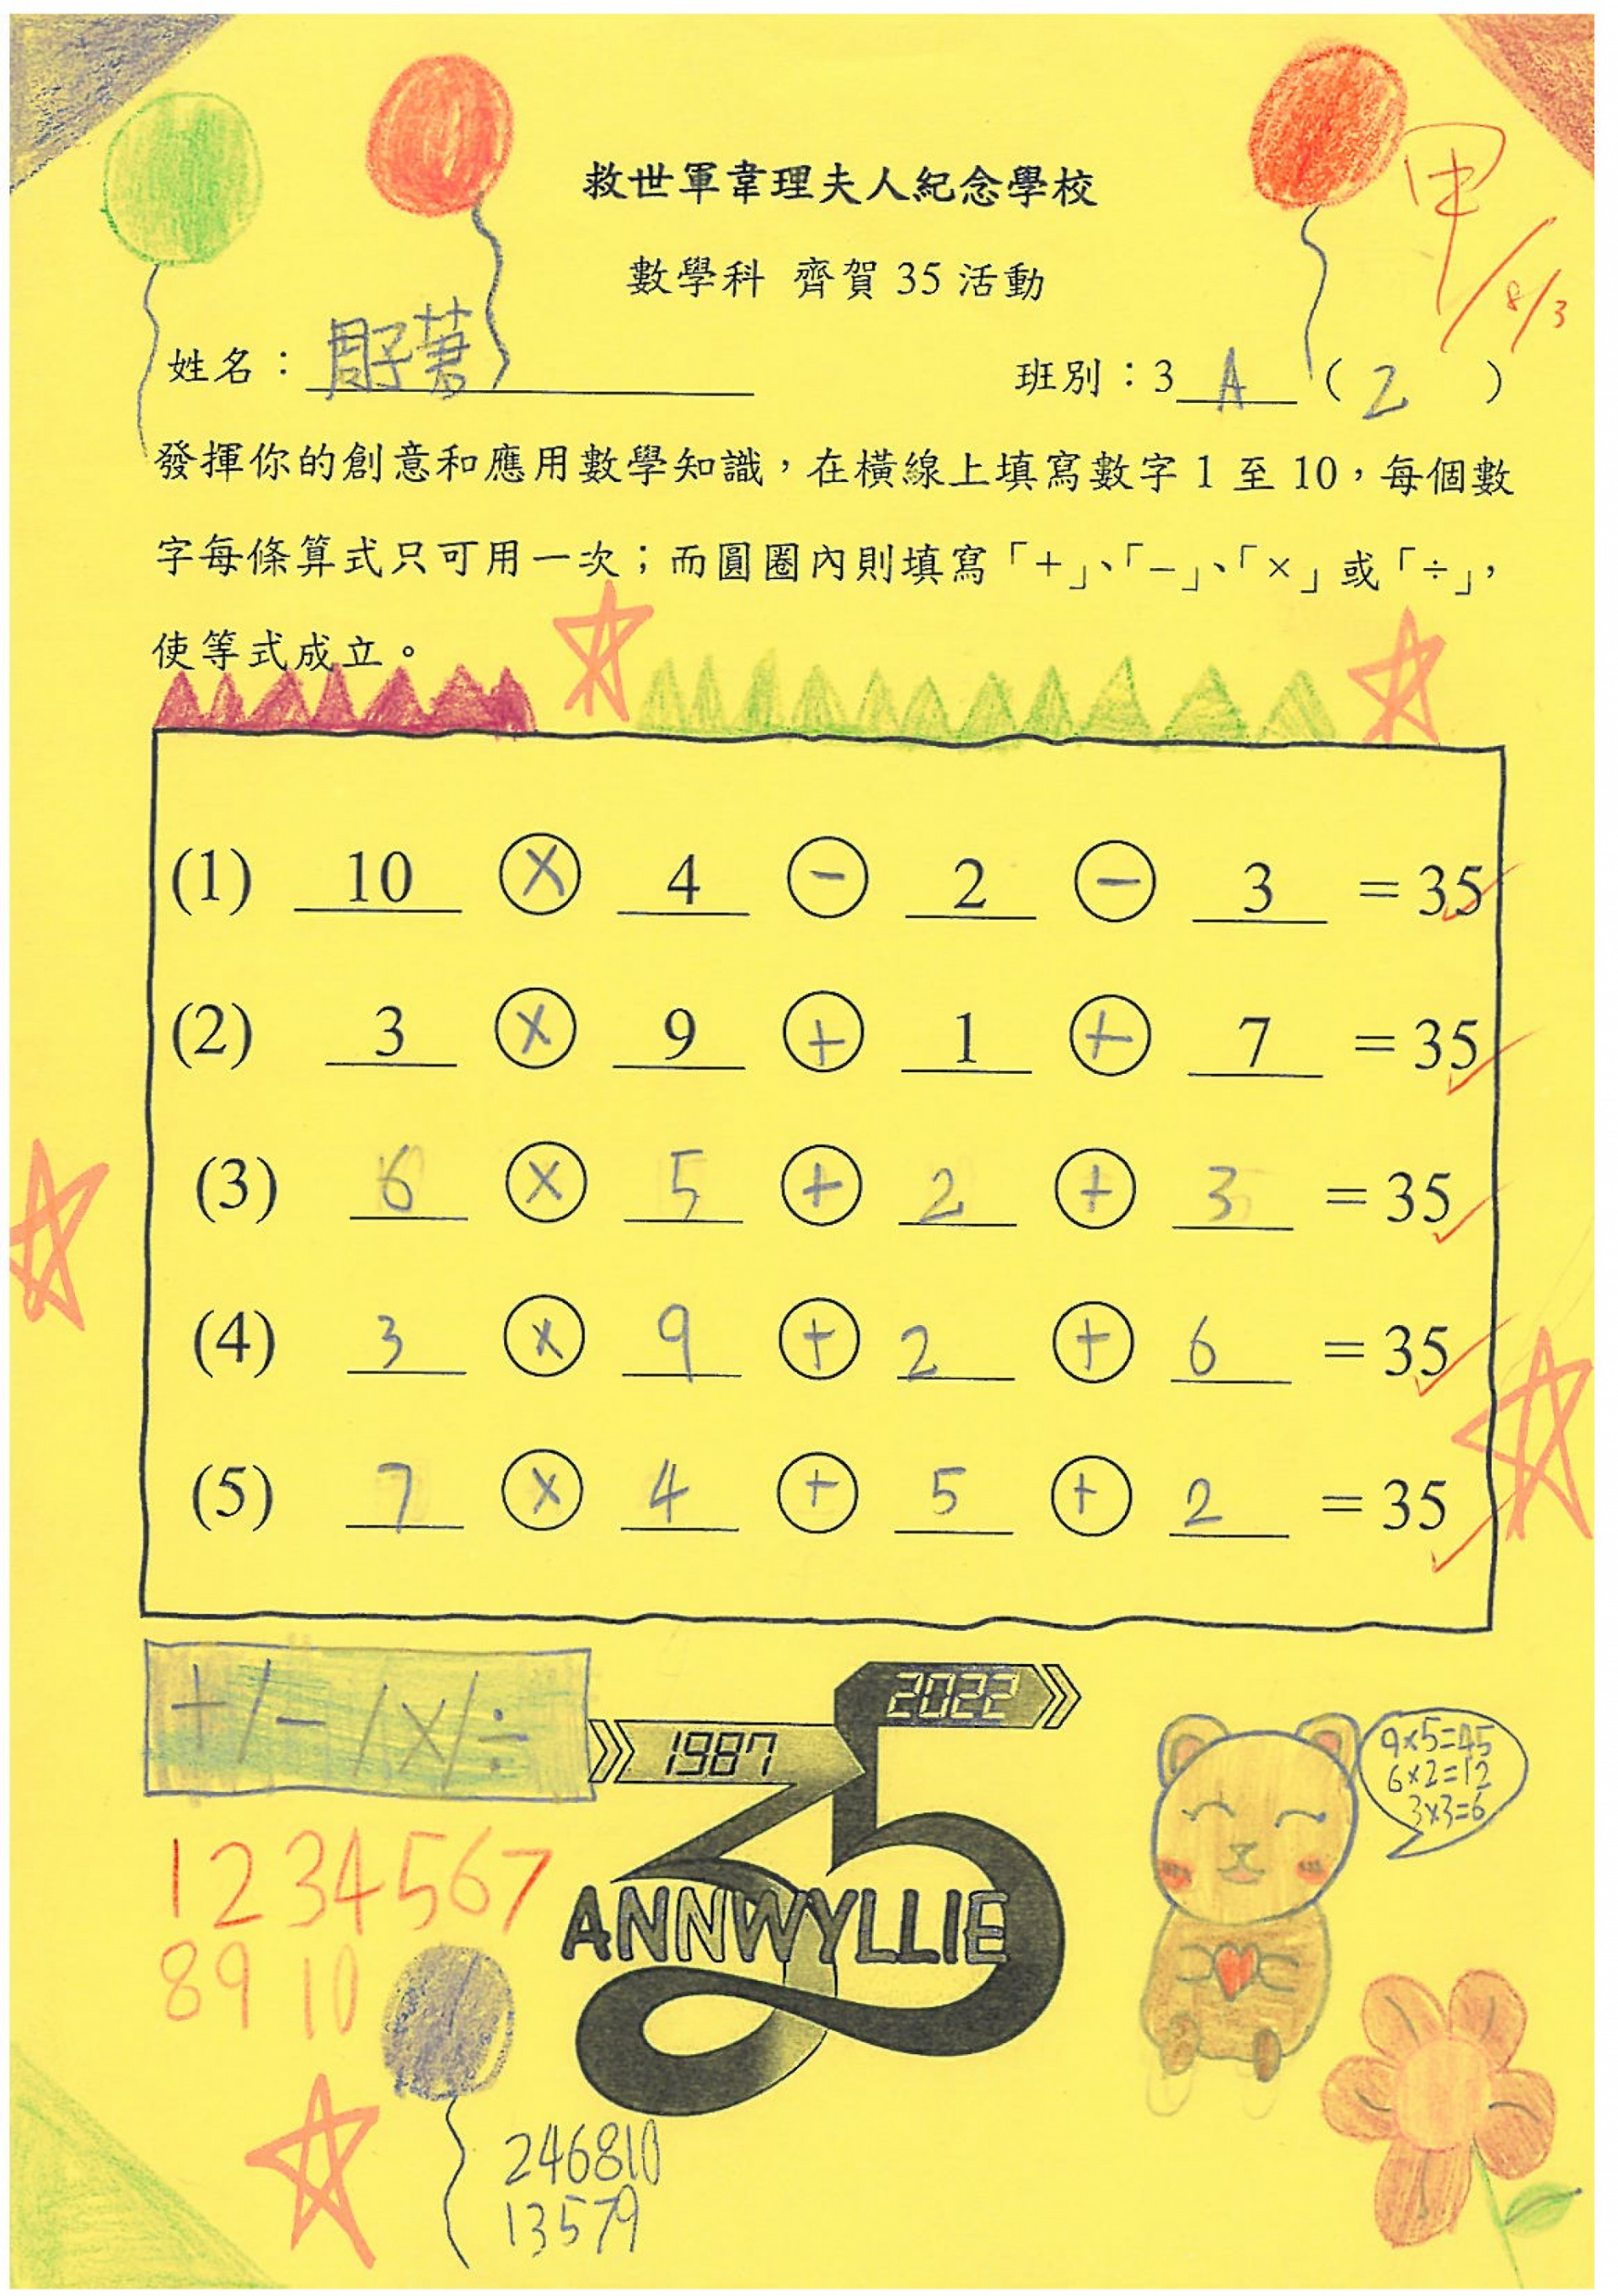 救世軍韋理夫人紀念學校
數學科 齊賀 35 活動
甲
8/3
姓名：周子蕎
班別：3 A ( 2 )
發揮你的創意和應用數學知識，在橫線上填寫數字 1 至 10，每個數
字每條算式只可用一次；而圓圈內則填寫「+」、「−」、「×」或「÷」，
使等式成立。
(1) 10 × 4 − 2 − 3 = 35
(2) 3 × 9 + 1 + 7 = 35
(3) 6 × 5 + 2 + 3 = 35
(4) 3 × 9 + 2 + 6 = 35
(5) 7 × 4 + 5 + 2 = 35
+/−/×/÷
2022
1987
35
ANNWYLLIE
9×5=45
6×2=12
3×3=6
1234567
8910
246810
13579